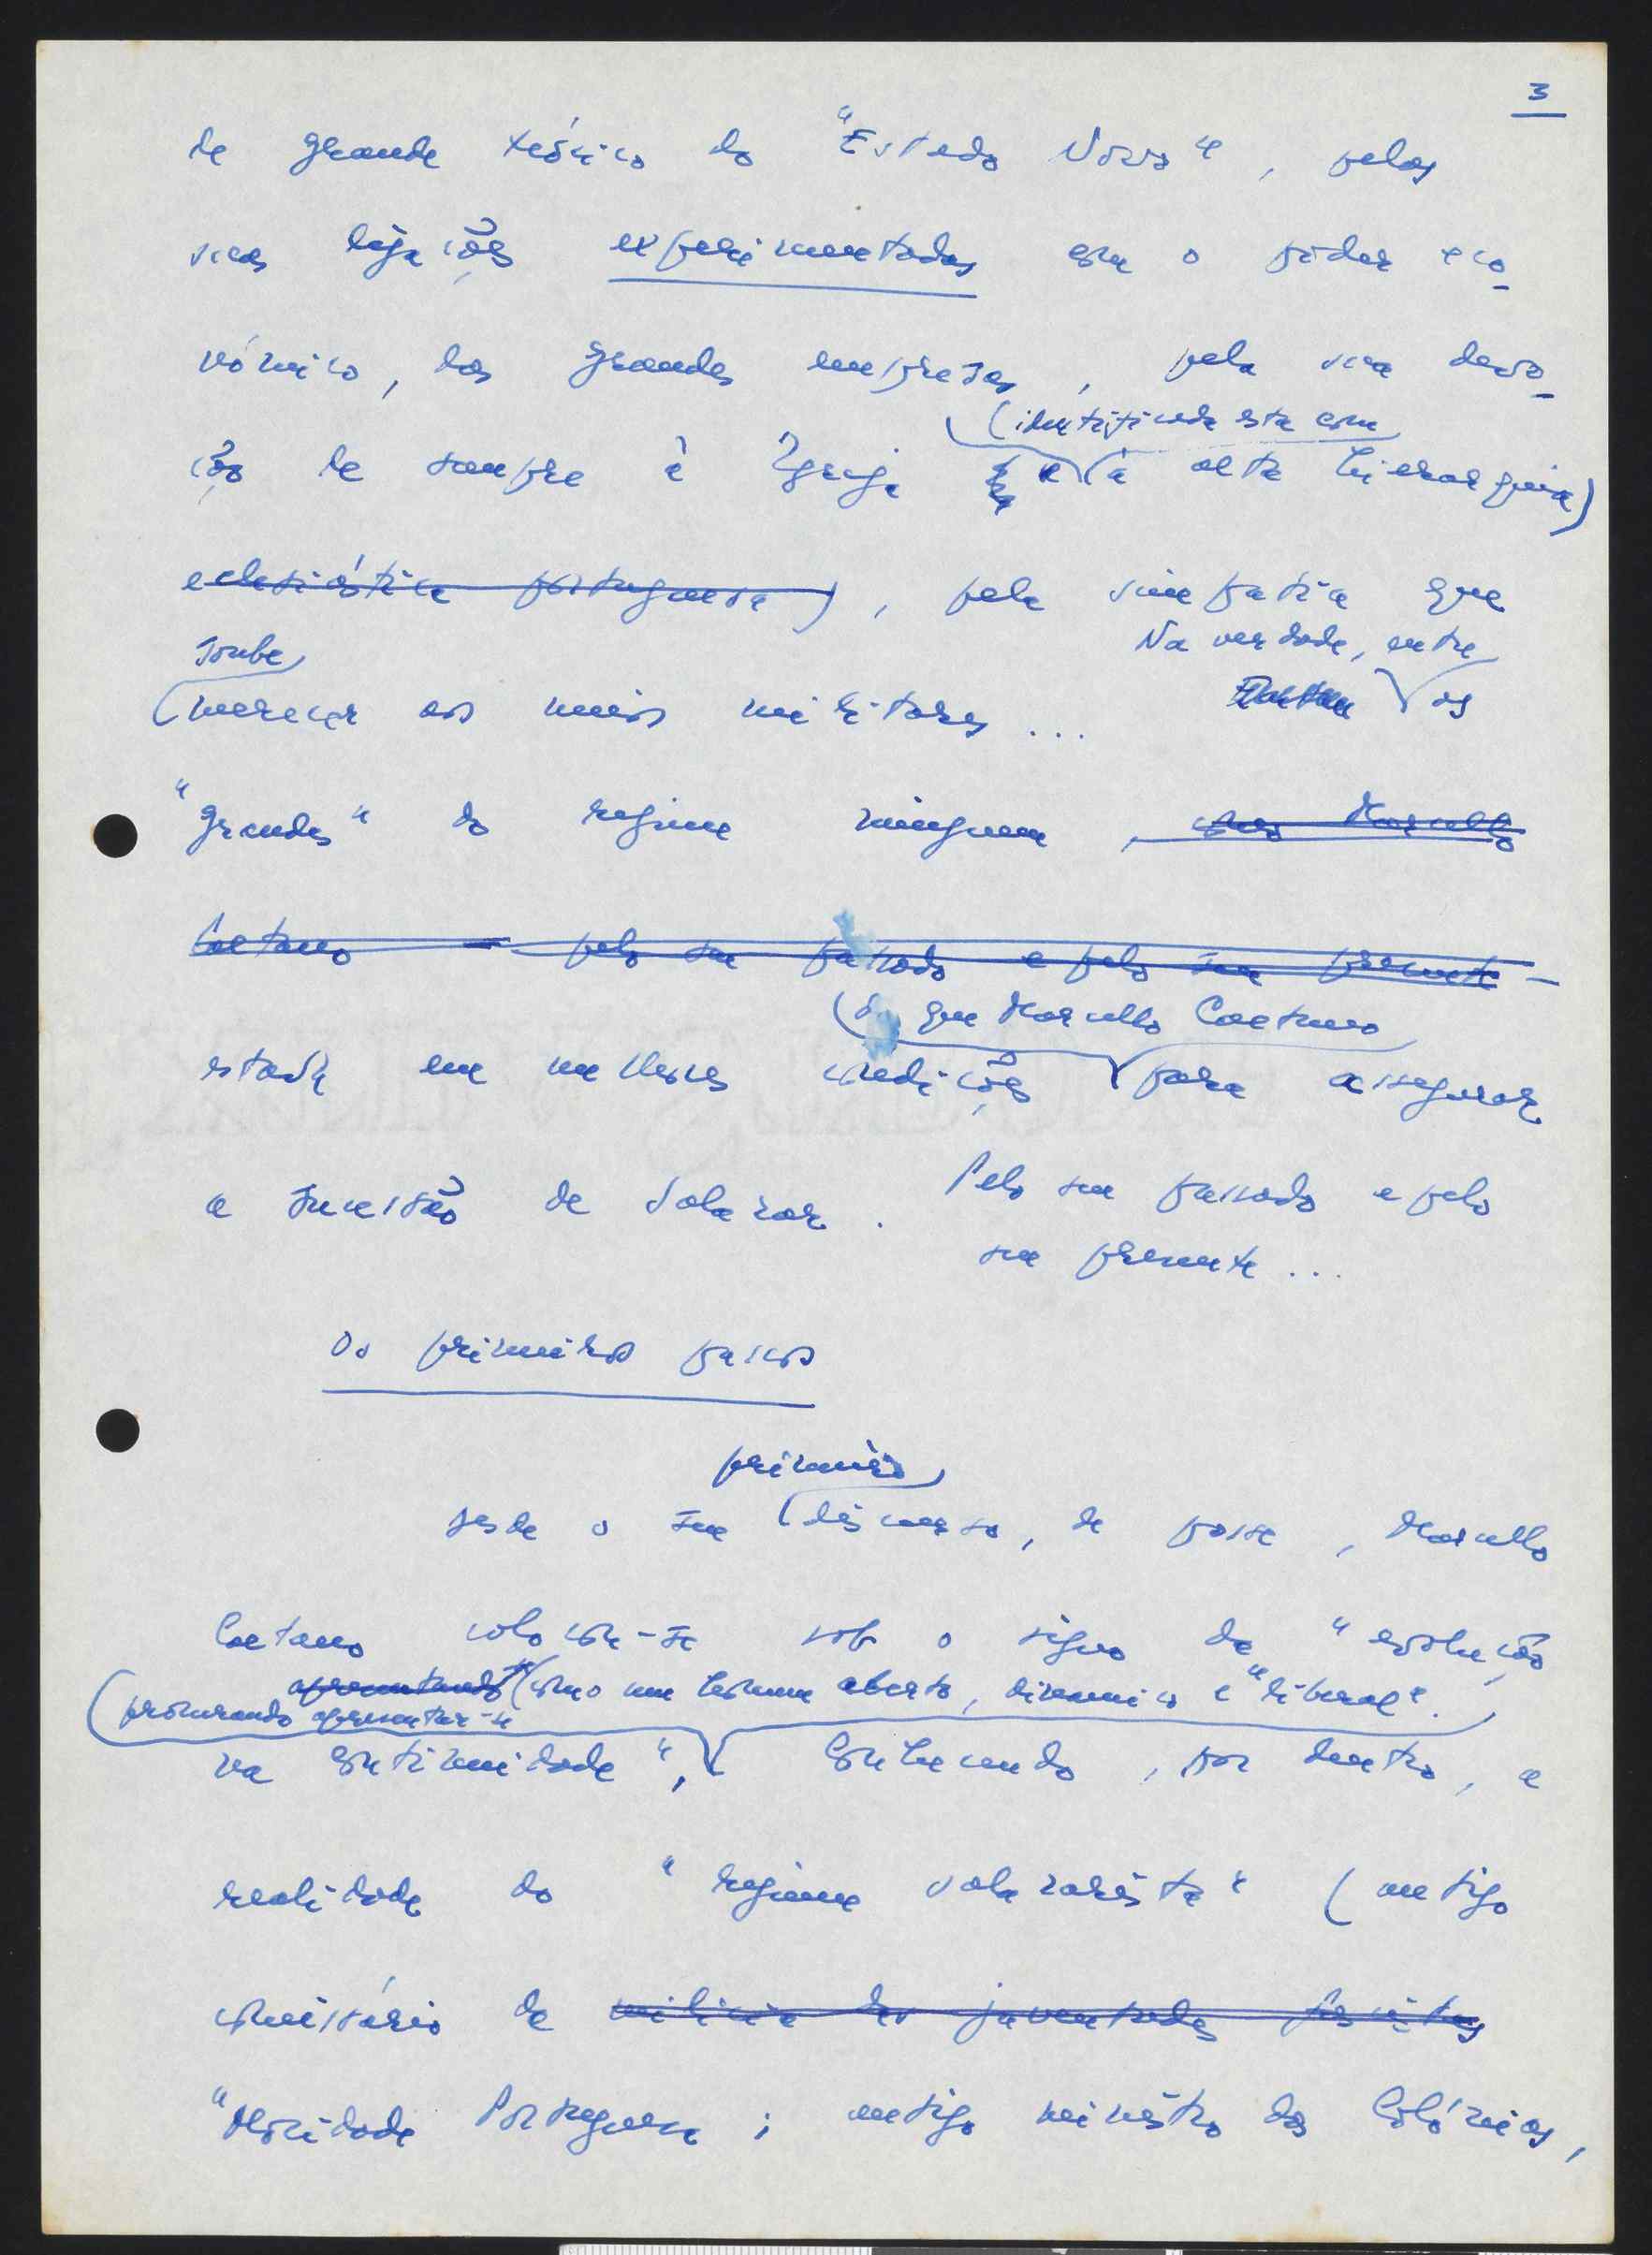 3
de grande teórico do "Estado Novo", pelas
suas ligações experimentadas com o poder eco-
nómico, das grandes empresas, pela sua devo-
(identificada esta com
ção de sempre à Igreja e à alta hierarquia)
eclesiástica portuguesa), pela simpatia que
Na verdade, entre
soube
merecer aos meios militares... os
"grandes" do regime ninguem, como Marcello
Caetano - pelo seu passado e pelo seu presente -
(do que Marcello Caetano
estava em melhores condições para assegurar
a sucessão de Salazar. Pelo seu passado e pelo
seu presente...
Os primeiros passos
primeiro
Desde o seu discurso, de posse, Marcello
Caetano colocou-se sob o signo da "evolução
apresentando-se (como um homem aberto, dinamico e "liberal".
(procurando apresentar-se
na continuidade", Conhecendo, por dentro, a
realidade do "regime salazarista" (antigo
comissário da milicia das juventudes fascistas
"Mocidade Portuguesa; antigo ministro das Colónias,